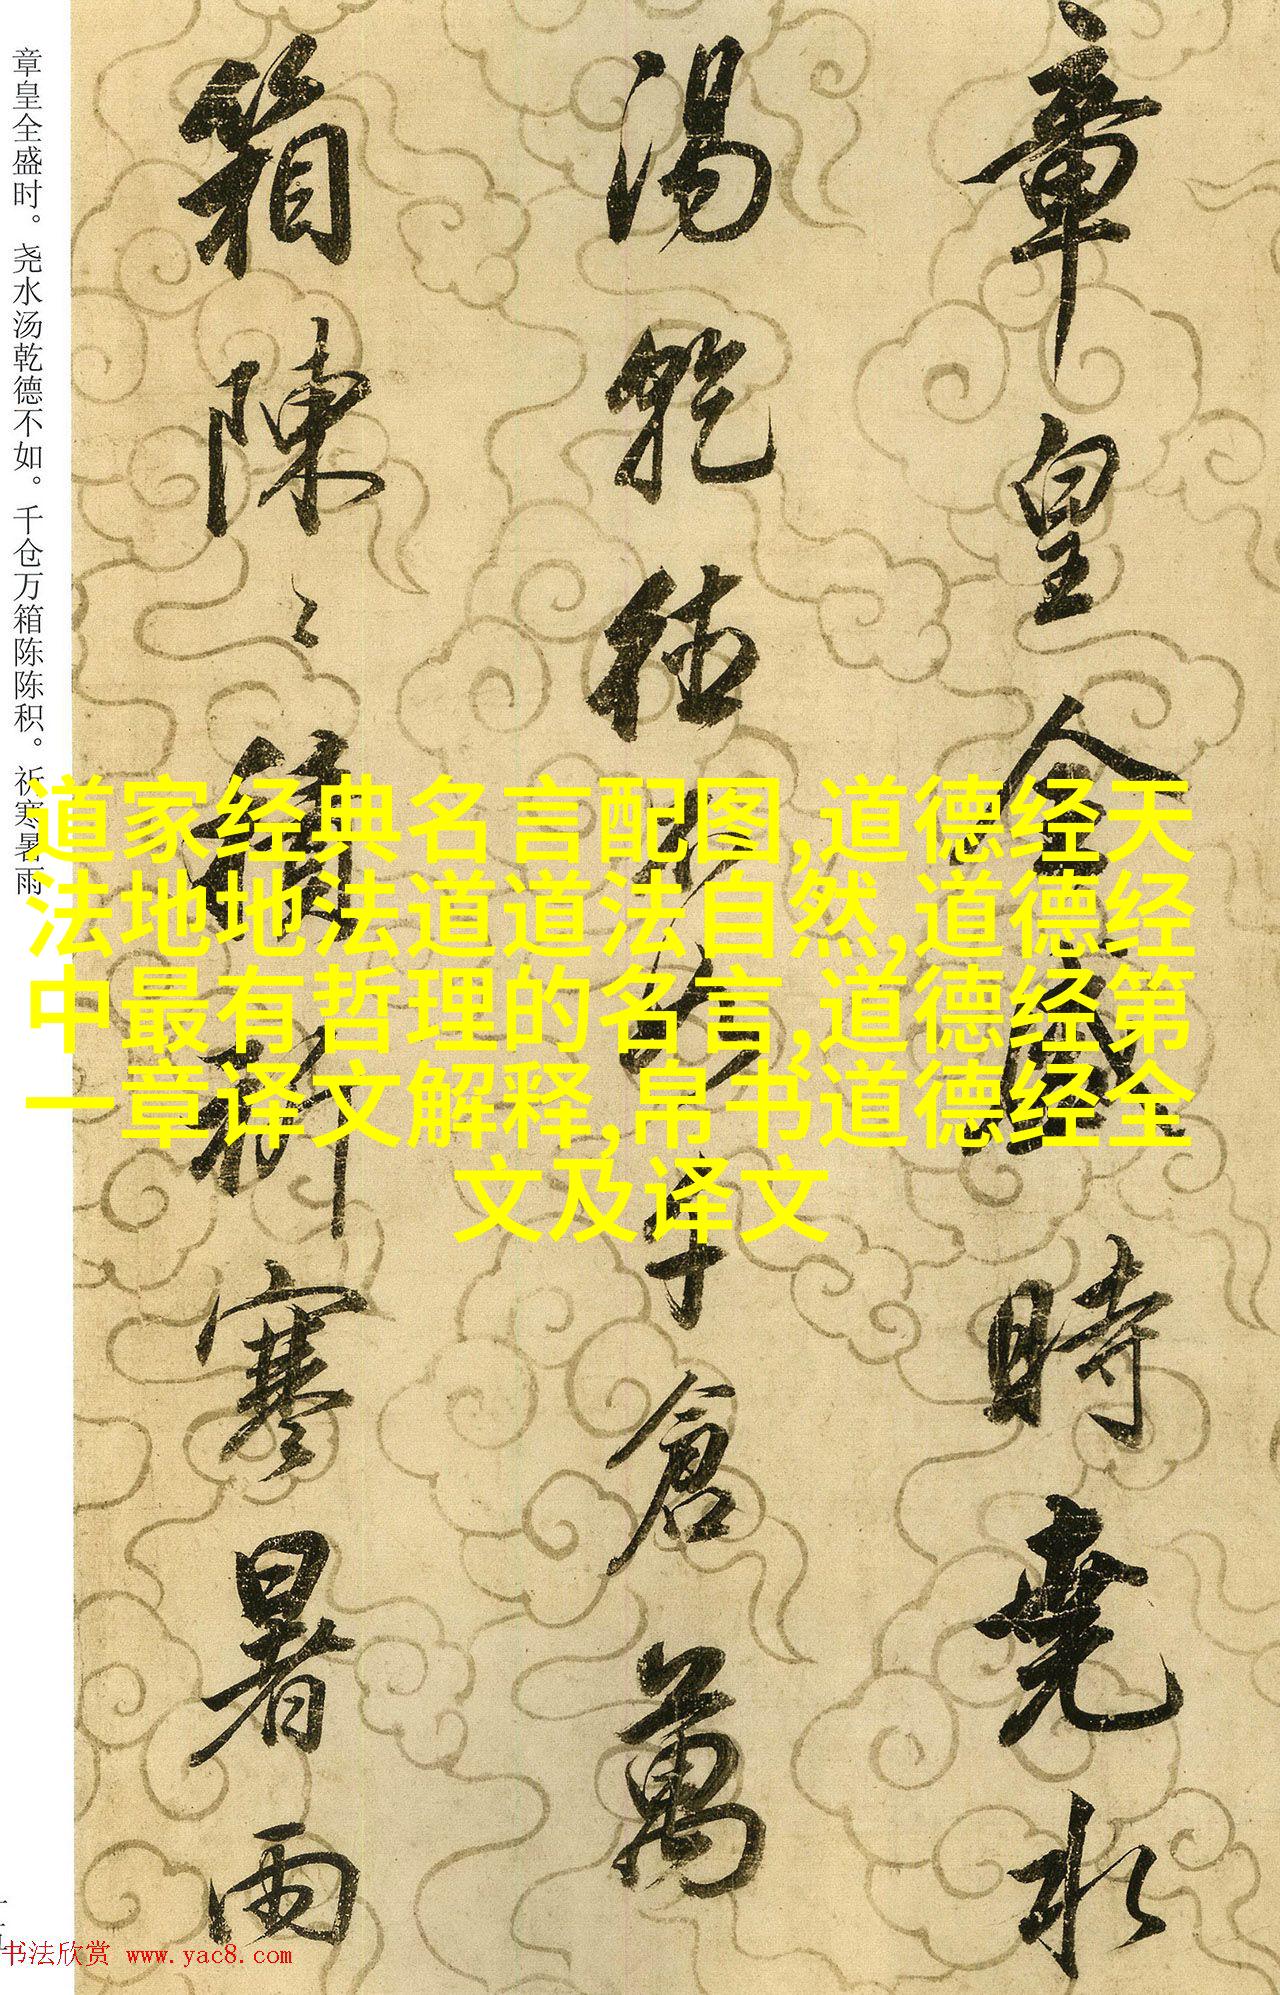 章皇全盛時堯水
湯乾德不如千倉萬
箱陳〻積祈寒暑雨
章皇全盛时。尧水汤乾德不如。千仓万箱陈陈积。祈寒暑雨
道家经典名言配图,道德经天
法地地法道道法自然,道德经
中最有哲理的名言,道德经第
一章译文解释,帛书道德经全
文及译文
书法欣赏 www.yac8.com